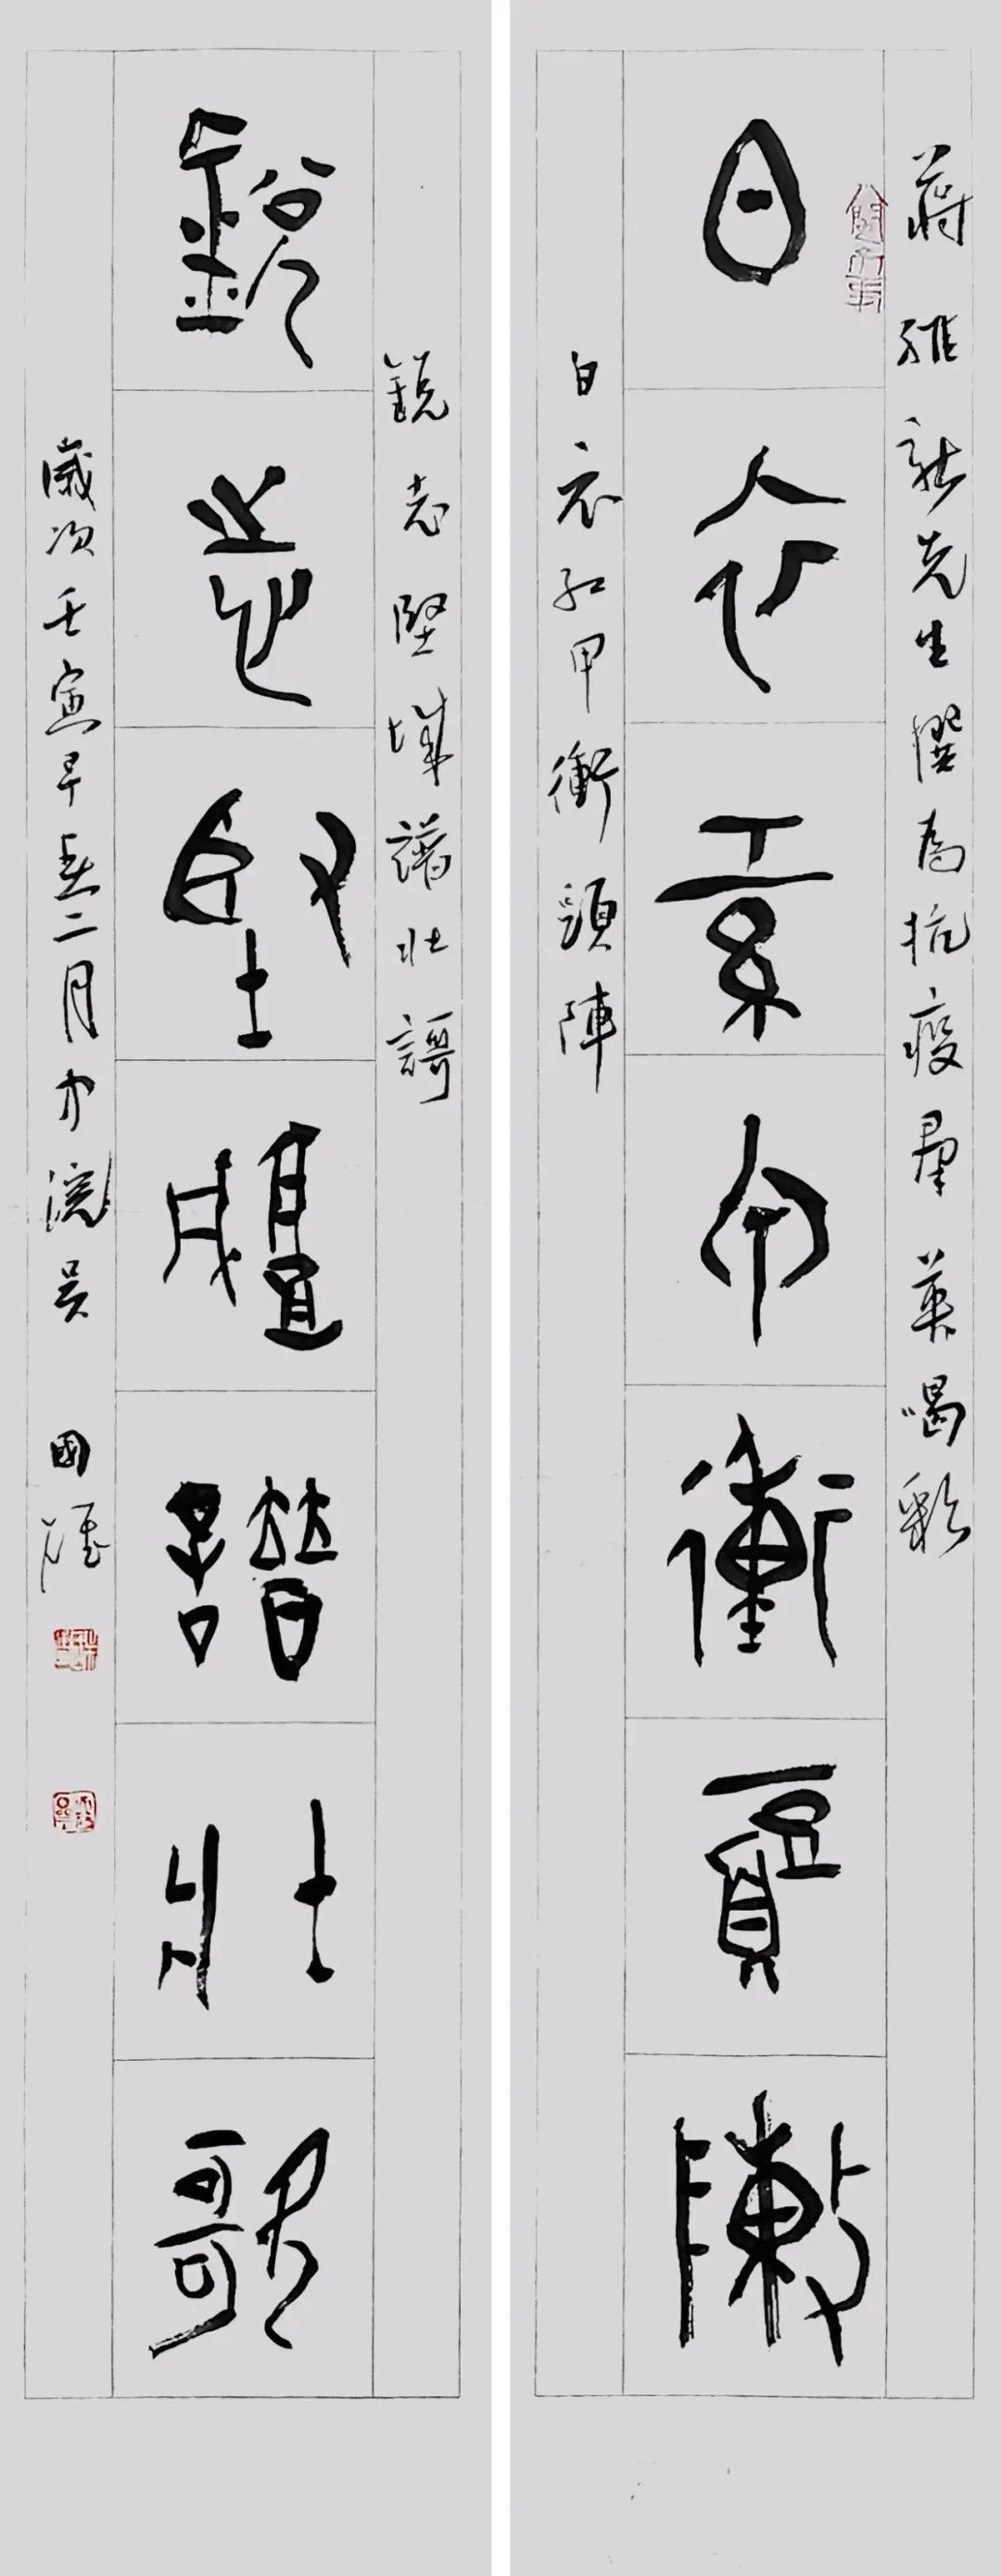 蔣維新先生撰為抗疫羣英喝彩
白衣紅甲衝頭陣
白衣紅甲衝頭陣
銳志堅城譜壯謌
銳志堅城譜壯歌
歲次壬寅早春二月中浣吴國